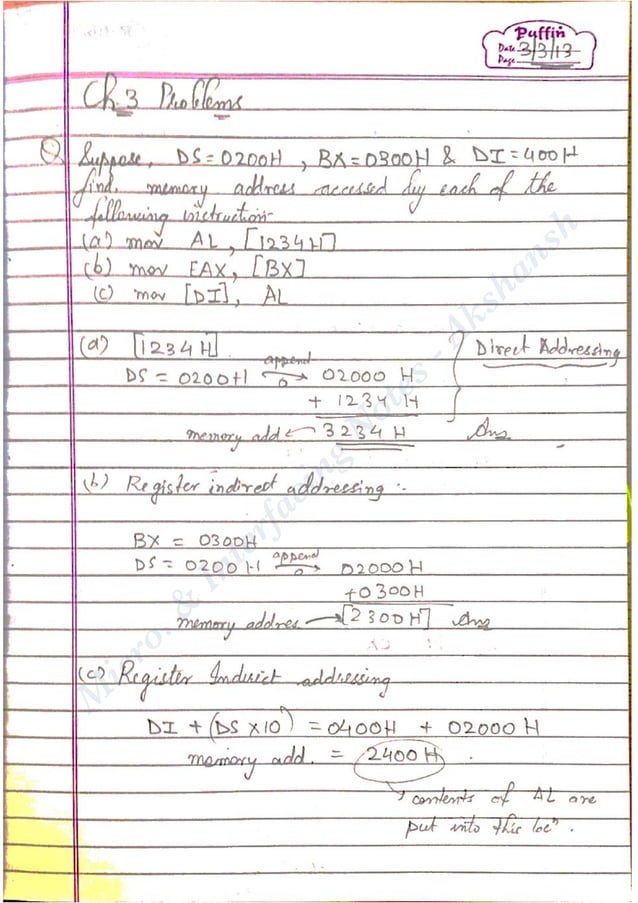 Puffin
Date 3/3/13
Page
Ch.3 Problems
Q Suppose, DS=0200H, BX=0300H & DI=400H
find. memory address accessed by each of the
following instruction-
(a) mov AL, [1234H]
(b) mov EAX, [BX]
(c) mov [DI], AL
(a) [1234H]
DS = 0200H append 0 → 02000 H
+ 1234 H
memory add ← 3234 H Ans
} Direct Addressing
(b) Register indirect addressing :-
BX = 0300H
DS = 0200H append 0 → 02000H
+0300H
memory addres → [2300H] Ans
(c) Register Indirect addressing
DI + (DS × 10) = 0400H + 02000 H
memory add. = 2400 H .
→ contents of AL are
put into this locⁿ.
Micro. & Interfacing Notes - Akshansh